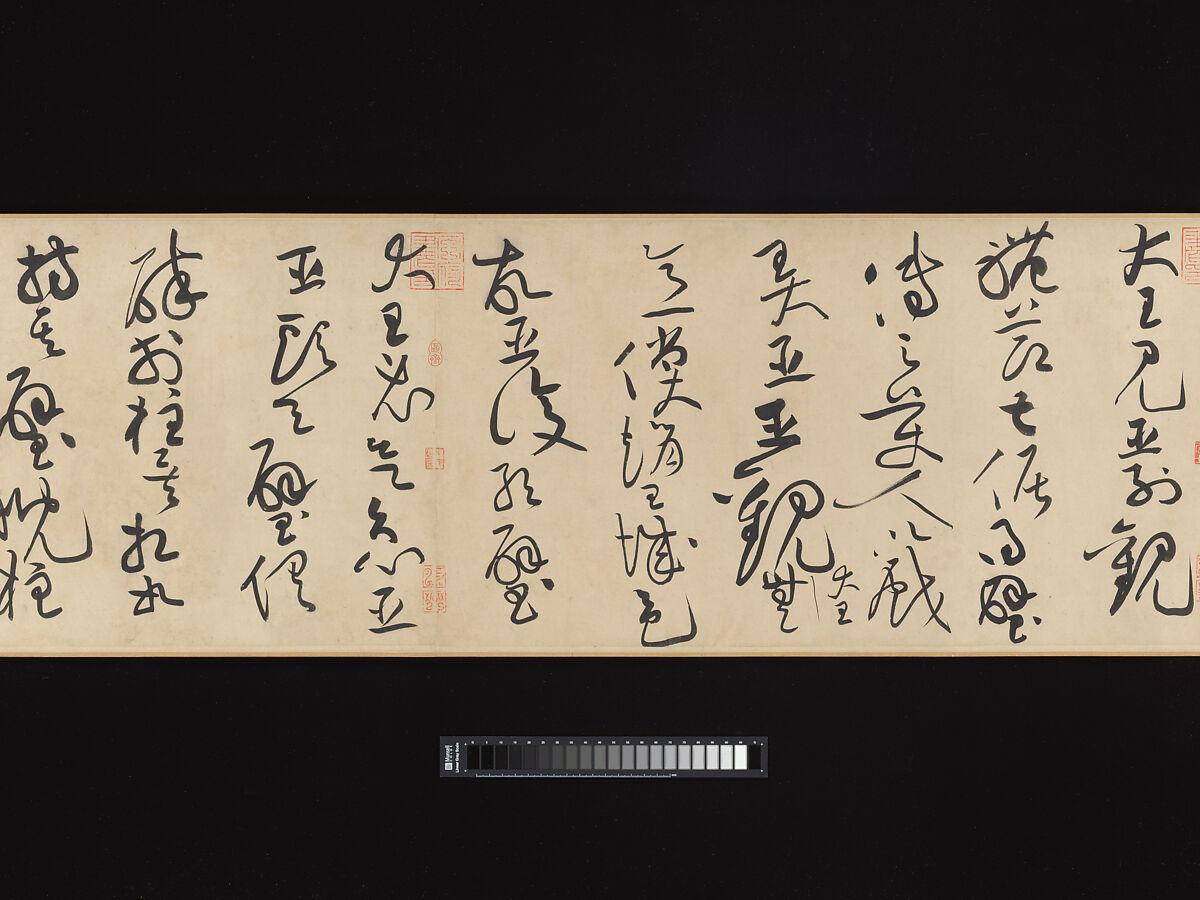 大王見臣列觀
禮節甚倨得璧
傳之美人以戲
弄臣臣觀大王無
意償趙王城邑
故臣復取璧
大王必欲急臣
臣頭今璧俱
碎於柱矣相如
持其璧睨柱